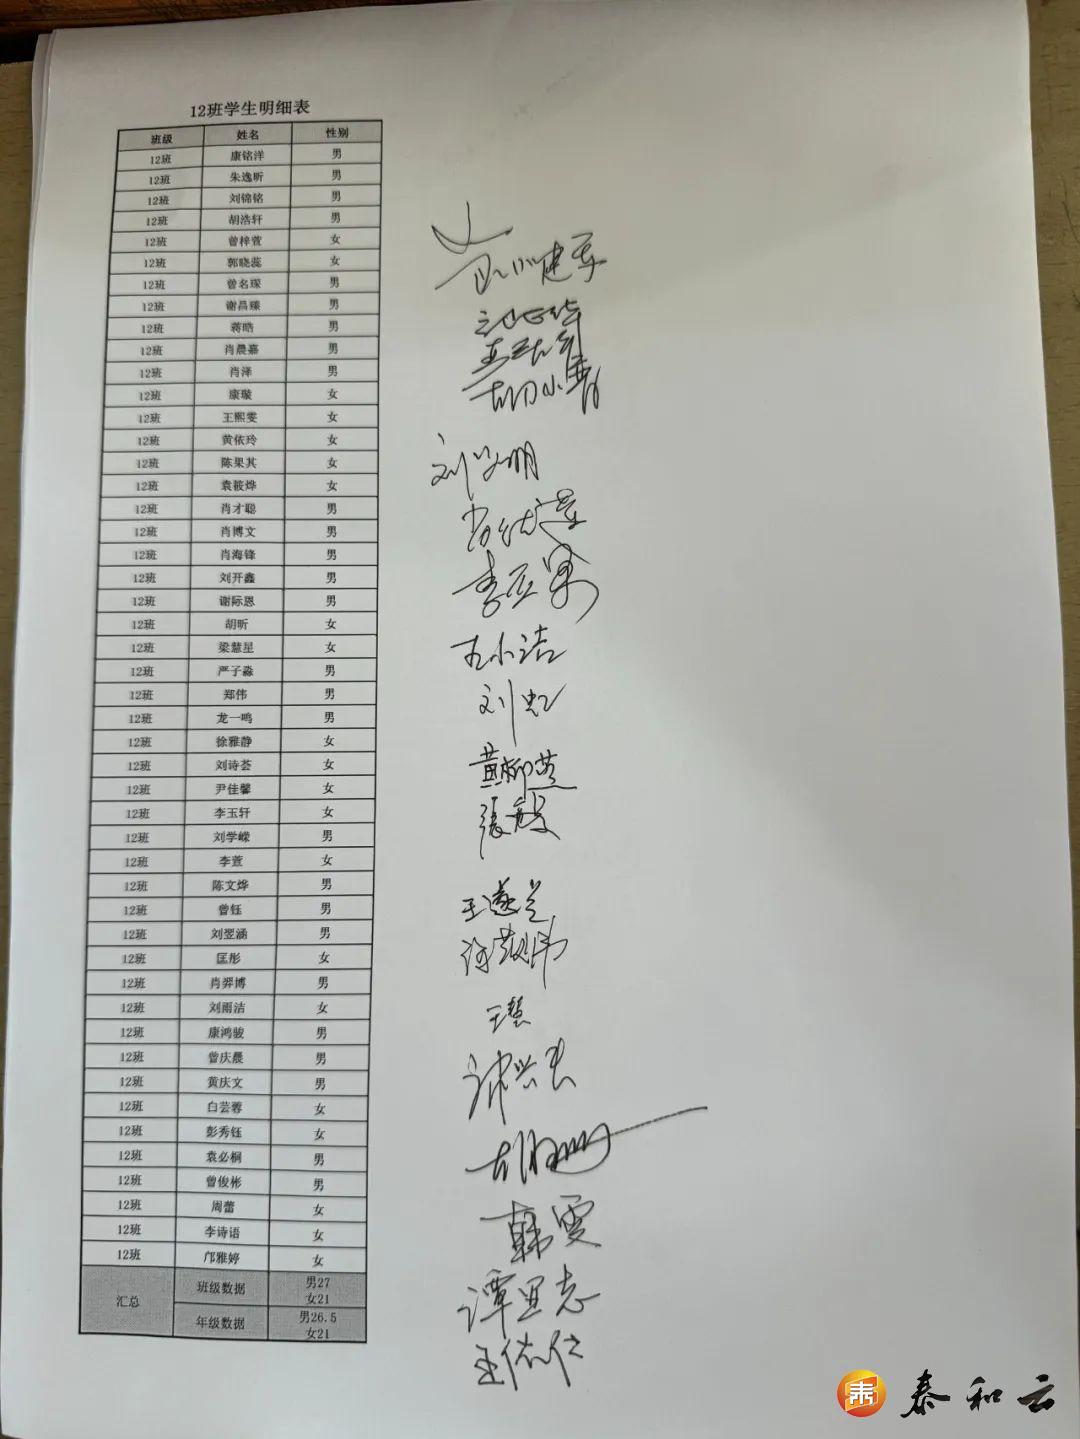 12班学生明细表
班级 姓名 性别
12班 康铭洋 男
12班 朱逸昕 男
12班 刘锦铭 男
12班 胡浩轩 男
12班 曾梓萱 女
12班 郭晓蕊 女
12班 曾名琛 男
12班 谢昌臻 男
12班 蒋晧 男
12班 肖晨嘉 男
12班 肖泽 男
12班 康璇 女
12班 王熙雯 女
12班 黄依玲 女
12班 陈果其 女
12班 袁筱烨 女
12班 肖才聪 男
12班 肖博文 男
12班 肖海锋 男
12班 刘开鑫 男
12班 谢际恩 男
12班 胡昕 女
12班 梁慧星 女
12班 严子淼 男
12班 郑伟 男
12班 龙一鸣 男
12班 徐雅静 女
12班 刘诗荟 女
12班 尹佳馨 女
12班 李玉轩 女
12班 刘学嵘 男
12班 李萱 女
12班 陈文烨 男
12班 曾钰 男
12班 刘翌涵 男
12班 匡彤 女
12班 肖羿博 男
12班 刘雨洁 女
12班 康鸿骏 男
12班 曾庆晨 男
12班 黄庆文 男
12班 白芸蓉 女
12班 彭秀钰 女
12班 袁必桐 男
12班 曾俊彬 男
12班 周蕾 女
12班 李诗语 女
12班 邝雅婷 女
汇总 班级数据 男27 女21
年级数据 男26.5 女21
王小洁
刘虹
王慧
韩雯
谭宜志
泰和云